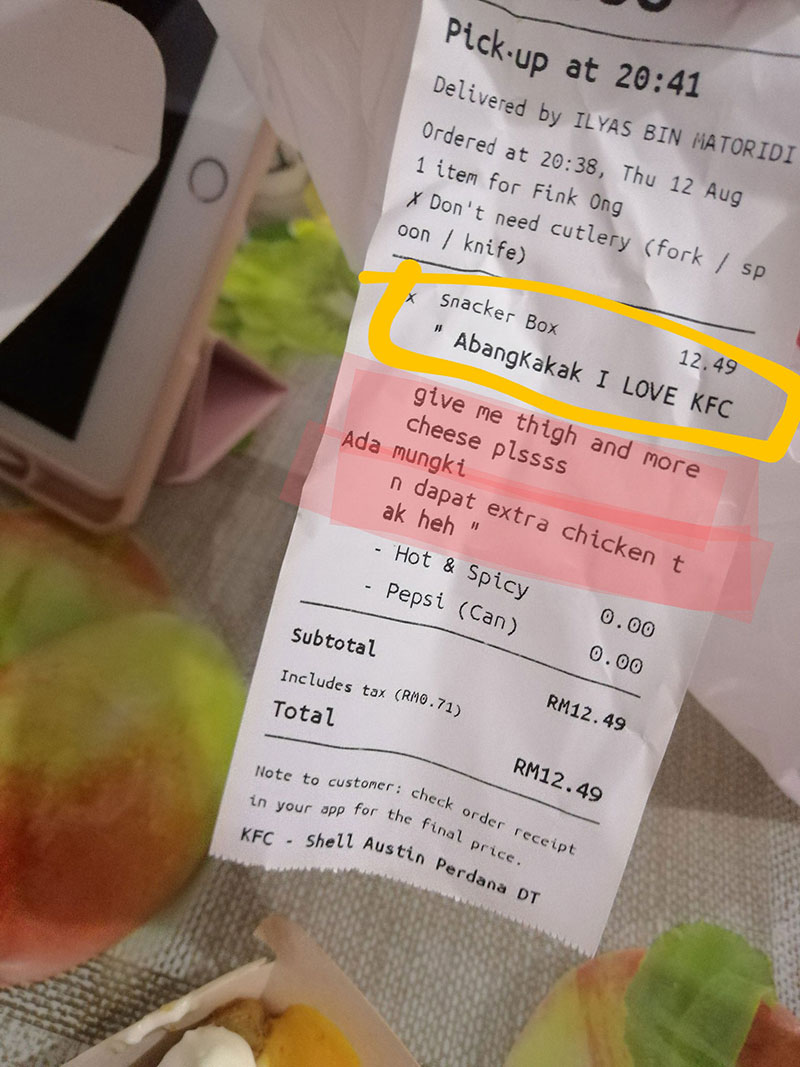 Pick-up at 20:41
Delivered by ILYAS BIN MATORIDI
Ordered at 20:38, Thu 12 Aug
1 item for Fink Ong
✗ Don't need cutlery (fork / sp
oon / knife)
x Snacker Box 12.49
" AbangKakak I LOVE KFC
give me thigh and more
cheese plssss
Ada mungki
n dapat extra chicken t
ak heh "
- Hot & Spicy 0.00
- Pepsi (Can) 0.00
Subtotal RM12.49
Includes tax (RM0.71)
Total RM12.49
Note to customer: check order receipt
in your app for the final price.
KFC - Shell Austin Perdana DT